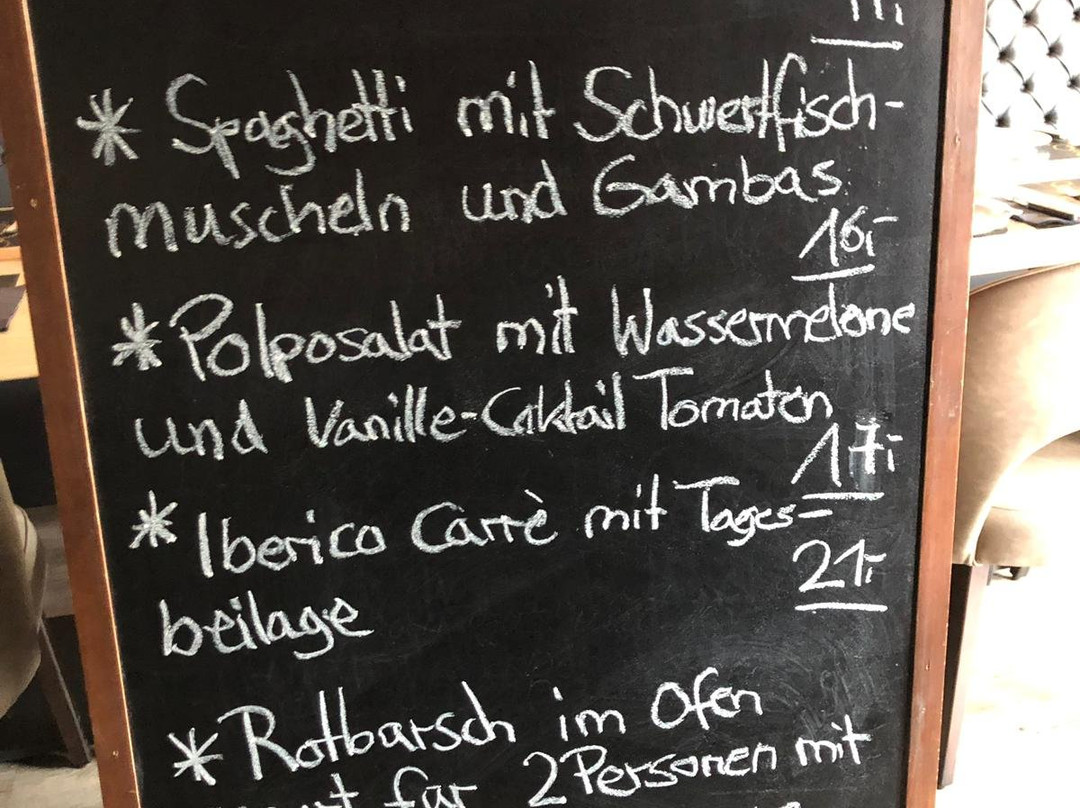 * Spaghetti mit Schwertfisch-
muscheln und Gambas
16,-
* Polposalat mit Wassermelone
und Vanille-Coktail Tomaten
17,-
* Iberico Carrè mit Tages-
21,-
beilage
* Rotbarsch im Ofen
für 2 Personen mit